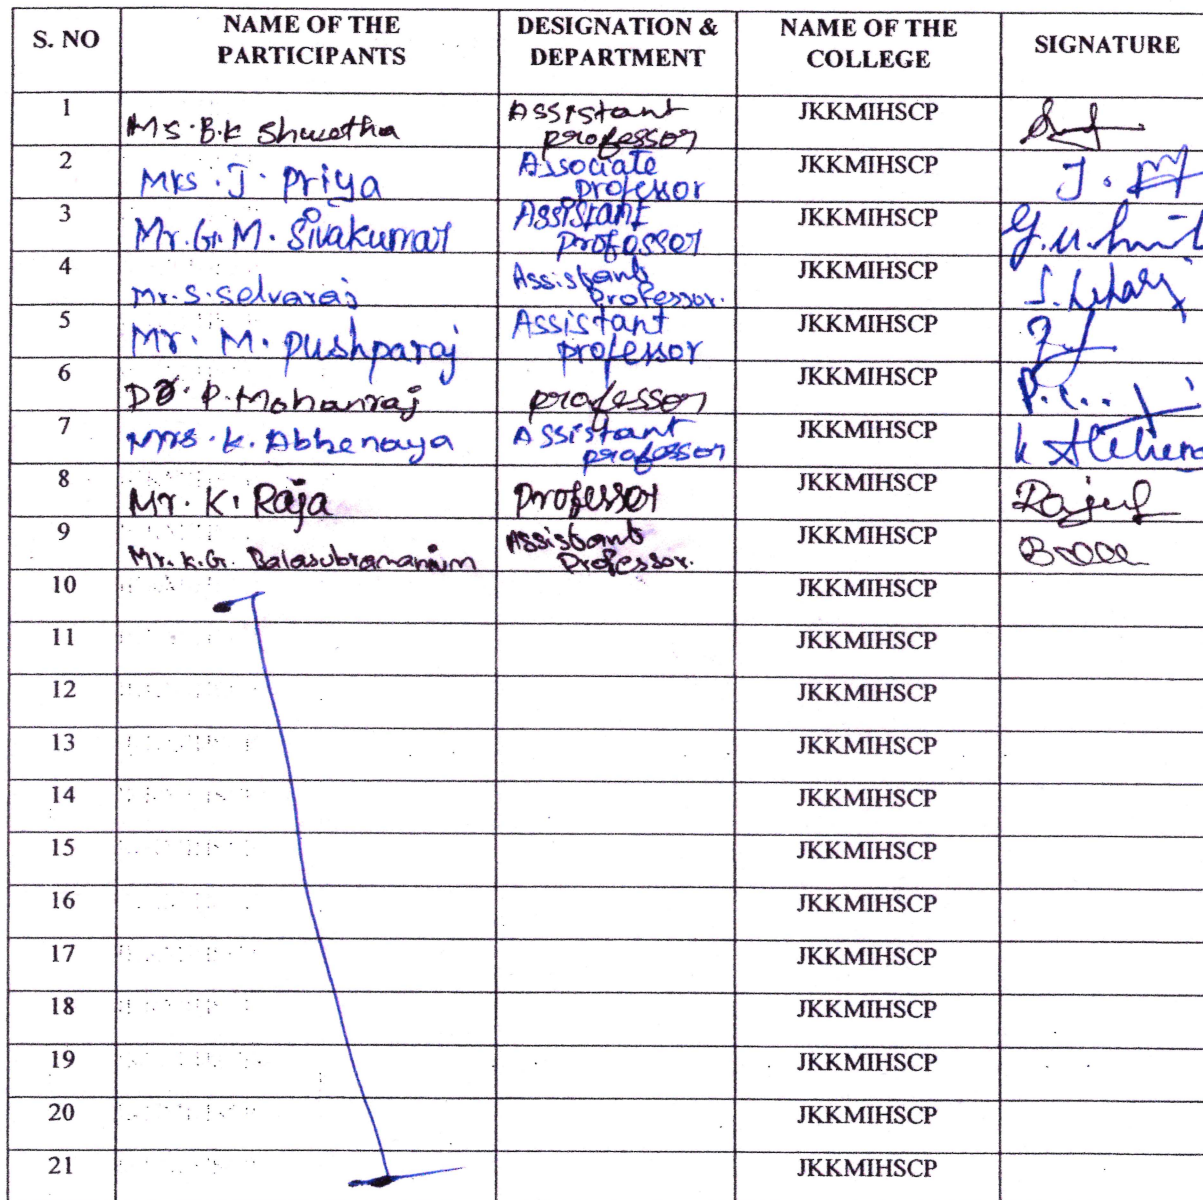 S. NO NAME OF THE PARTICIPANTS DESIGNATION & DEPARTMENT NAME OF THE COLLEGE SIGNATURE
1 Ms. B.K Shwetha Assistant professor JKKMIHSCP
2 Mrs. J. Priya Associate professor JKKMIHSCP J.
3 Mr. G. M. Sivakumar Assistant professor JKKMIHSCP
4 Mr. S. Selvaraj Assistant Professor. JKKMIHSCP
5 Mr. M. Pushparaj Assistant professor JKKMIHSCP
6 Dr. P. Mohanraj professor JKKMIHSCP
7 Mrs. K. Abhenaya Assistant professor JKKMIHSCP
8 Mr. K. Raja Professor JKKMIHSCP
9 Mr. K.G. Balasubramanium Assistant Professor. JKKMIHSCP
10 JKKMIHSCP
11 JKKMIHSCP
12 JKKMIHSCP
13 JKKMIHSCP
14 JKKMIHSCP
15 JKKMIHSCP
16 JKKMIHSCP
17 JKKMIHSCP
18 JKKMIHSCP
19 JKKMIHSCP
20 JKKMIHSCP
21 JKKMIHSCP